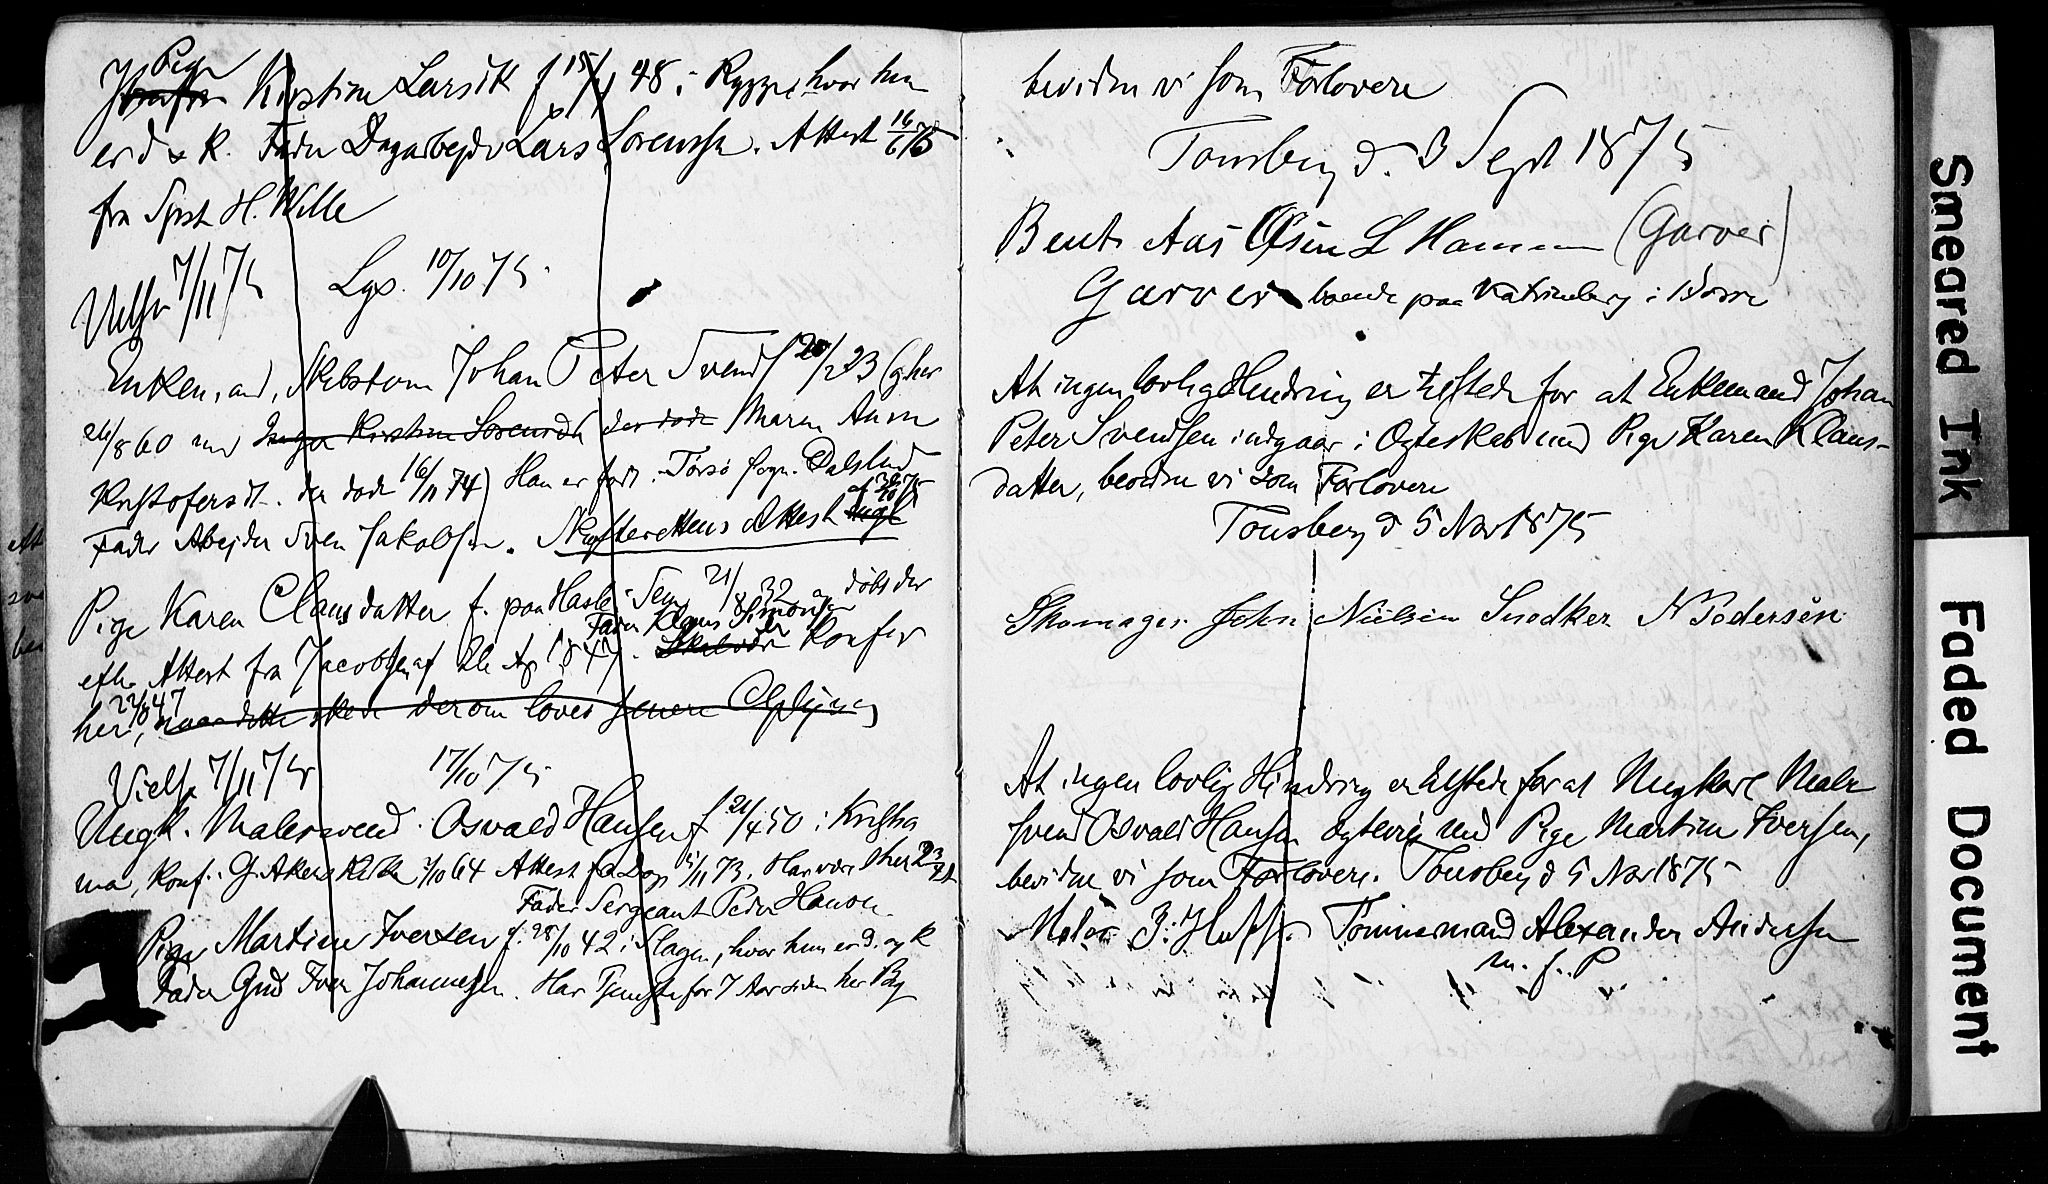 Pige
Jomfru Kirstine Larsdt f 15/4 48 i Rygge, hvor hun
er d & k. Fader Dagarbejder Lars Sorenssn. Attest 16/6 75
fra Sprst H. Wille
Vielse 7/11 75 Lys. 10/10 75.
Enkem, and, Johan Peter Svends 20/2 23 (g. her
24/8 60 med Inger Kirstine Sorensdt der døde Maren Anne
Kristofersdt. der døde 16/11 74) Han er født i Torsø Sogn. Dalsland
Fader Abejder Sven Jakobsen. Skifterettens Attest
Pige Karen Clausdatter f. paa Hasle i Sem 21/8 32 og døbt der
Fader Klaus Simonsen
efter Attest fra Jacobsen af Ap 1847. Konfir
her, 22/8 47 naar dette skede derom loves senere Oplysng
Vielse 7/11 75 17/10 75
Ungk. Malersvend Osvald Hansen f 21/4 50 i Kristia
nia, Konf. i Gl Akers Kirke 2/10 64 Attest fra 11 73. Har været her 2
Fader Sergeant Peder Hanson.
Pige Martine Iversen f. 28/10 42 i Slagen, hvor hun er d. og k
Fader Gmd Iver Johannesen. Har Tjeneste for 7 Aar siden her By
bevidne vi som Forlovere
Tonsberg d. 3 Sept 1875
Bent Aas Olsen L Hansen (Garver)
Garver boende paa Katrineberg i Borre
At ingen lovlig Hindring er tilstede for at Enkemand Johan
Peter Svendsen indgaar i Ogteskab med Pige Karen Klaus-
datter, bevidne vi som Forlovere
Tonsberg d 5 Nov 1875
Skomager John Nielsen Snedker N Pedersen
At ingen lovlig Hindring er tilstede for at Ungkarl Maler
svend Osvald Hansen ægtevier med Pige Martine Iversen,
bevidne vi som Forlovere. Tonsberg d 5 Nov 1875
Maler Tømmermand Alexander Andersen
m. f. P
Smeared Ink
Faded Document